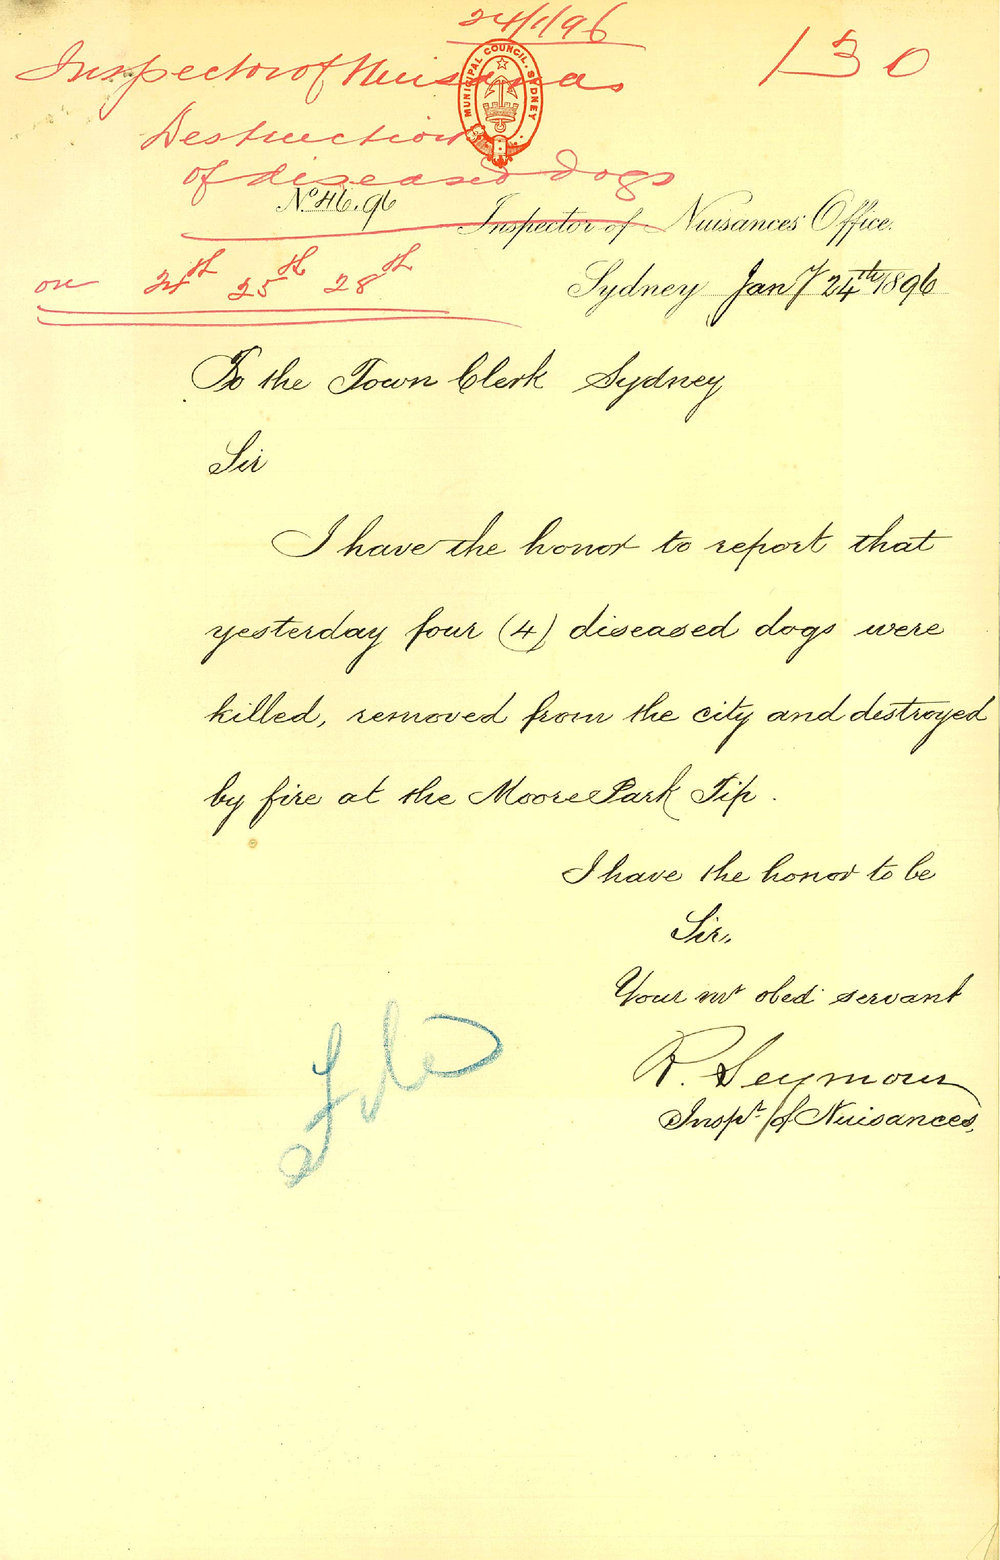 24/1/96
130
Inspector of Nuisances
MUNICIPAL COUNCIL. SYDNEY
Destruction
of diseased dogs
No 46.96
Inspector of Nuisances Office.
on 24th 25th 28th
Sydney Jany 24th 1896
To the Town Clerk Sydney
Sir
I have the honor to report that
yesterday four (4) diseased dogs were
killed, removed from the city and destroyed
by fire at the Moore Park Tip.
I have the honor to be
Sir,
Your mt obed servant
R. Seymour
Inspr of Nuisances,
File